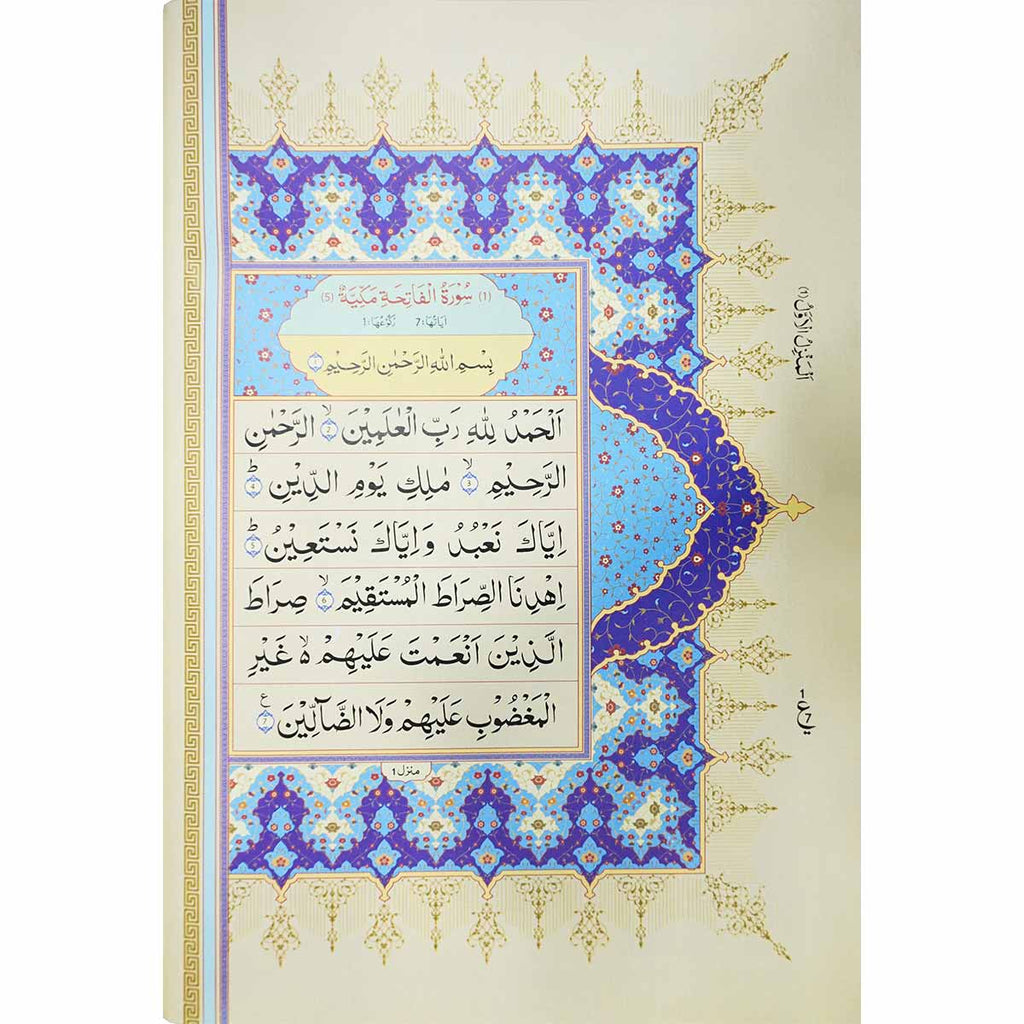 (1) سُوْرَةُ الْفَاتِحَةِ مَكِّيَّةٌ (5)
اٰيَاتُهَا:7 رُكُوْعُهَا:1
بِسْمِ اللّٰهِ الرَّحْمٰنِ الرَّحِيْمِ ۝1
اَلْحَمْدُ لِلّٰهِ رَبِّ الْعٰلَمِيْنَ ۙ۝2 الرَّحْمٰنِ
الرَّحِيْمِ ۙ۝3 مٰلِكِ يَوْمِ الدِّيْنِ ؕ۝4
اِيَّاكَ نَعْبُدُ وَ اِيَّاكَ نَسْتَعِيْنُ ؕ۝5
اِهْدِنَا الصِّرَاطَ الْمُسْتَقِيْمَ ۙ۝6 صِرَاطَ
الَّذِيْنَ اَنْعَمْتَ عَلَيْهِمْ ۙ۬ غَيْرِ
الْمَغْضُوْبِ عَلَيْهِمْ وَلَا الضَّآلِّيْنَ ۝7 ع
منزل 1
اَلْمَنْزِلُ الْاَوَّلُ (1)
1 ع 7